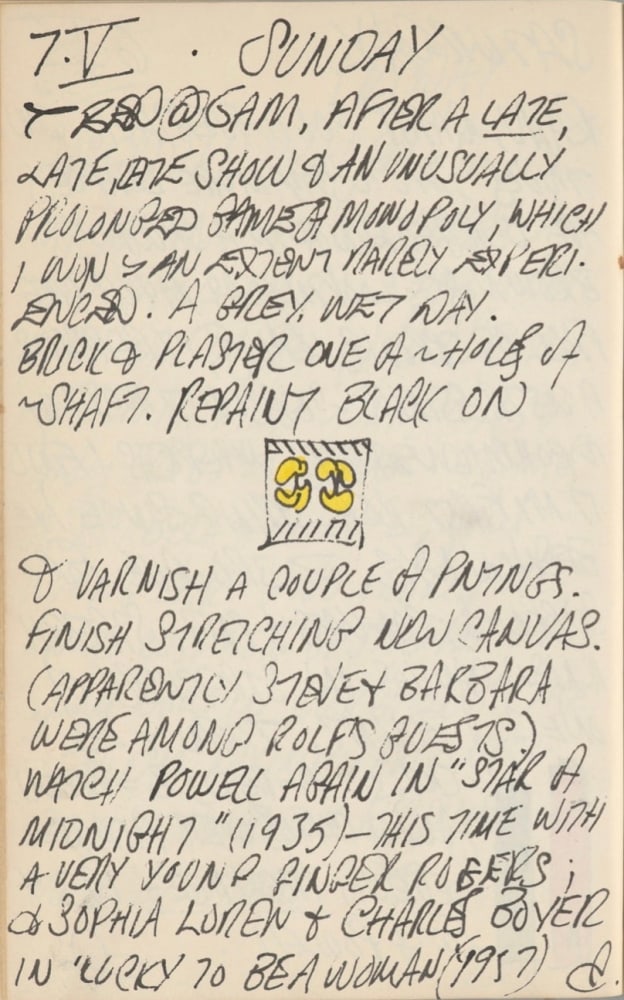 7.V · SUNDAY
~ BED @ 6AM, AFTER A LATE,
LATE, LATE SHOW & AN UNUSUALLY
PROLONGED GAME OF MONOPOLY, WHICH
I WON TO AN EXTENT RARELY EXPERI-
ENCED. A GREY, WET DAY.
BRICK & PLASTER ONE OF ~ HOLES OF
~ SHAFT. REPAINT BLACK ON
& VARNISH A COUPLE OF PNTNGS.
FINISH STRETCHING NEW CANVAS.
(APPARENTLY STEVE & BARBARA
WERE AMONG ROLF'S GUESTS.)
WATCH POWELL AGAIN IN "STAR OF
MIDNIGHT" (1935) – THIS TIME WITH
A VERY YOUNG GINGER ROGERS;
& SOPHIA LOREN & CHARLES BOYER
IN "LUCKY TO BE A WOMAN" (1957)